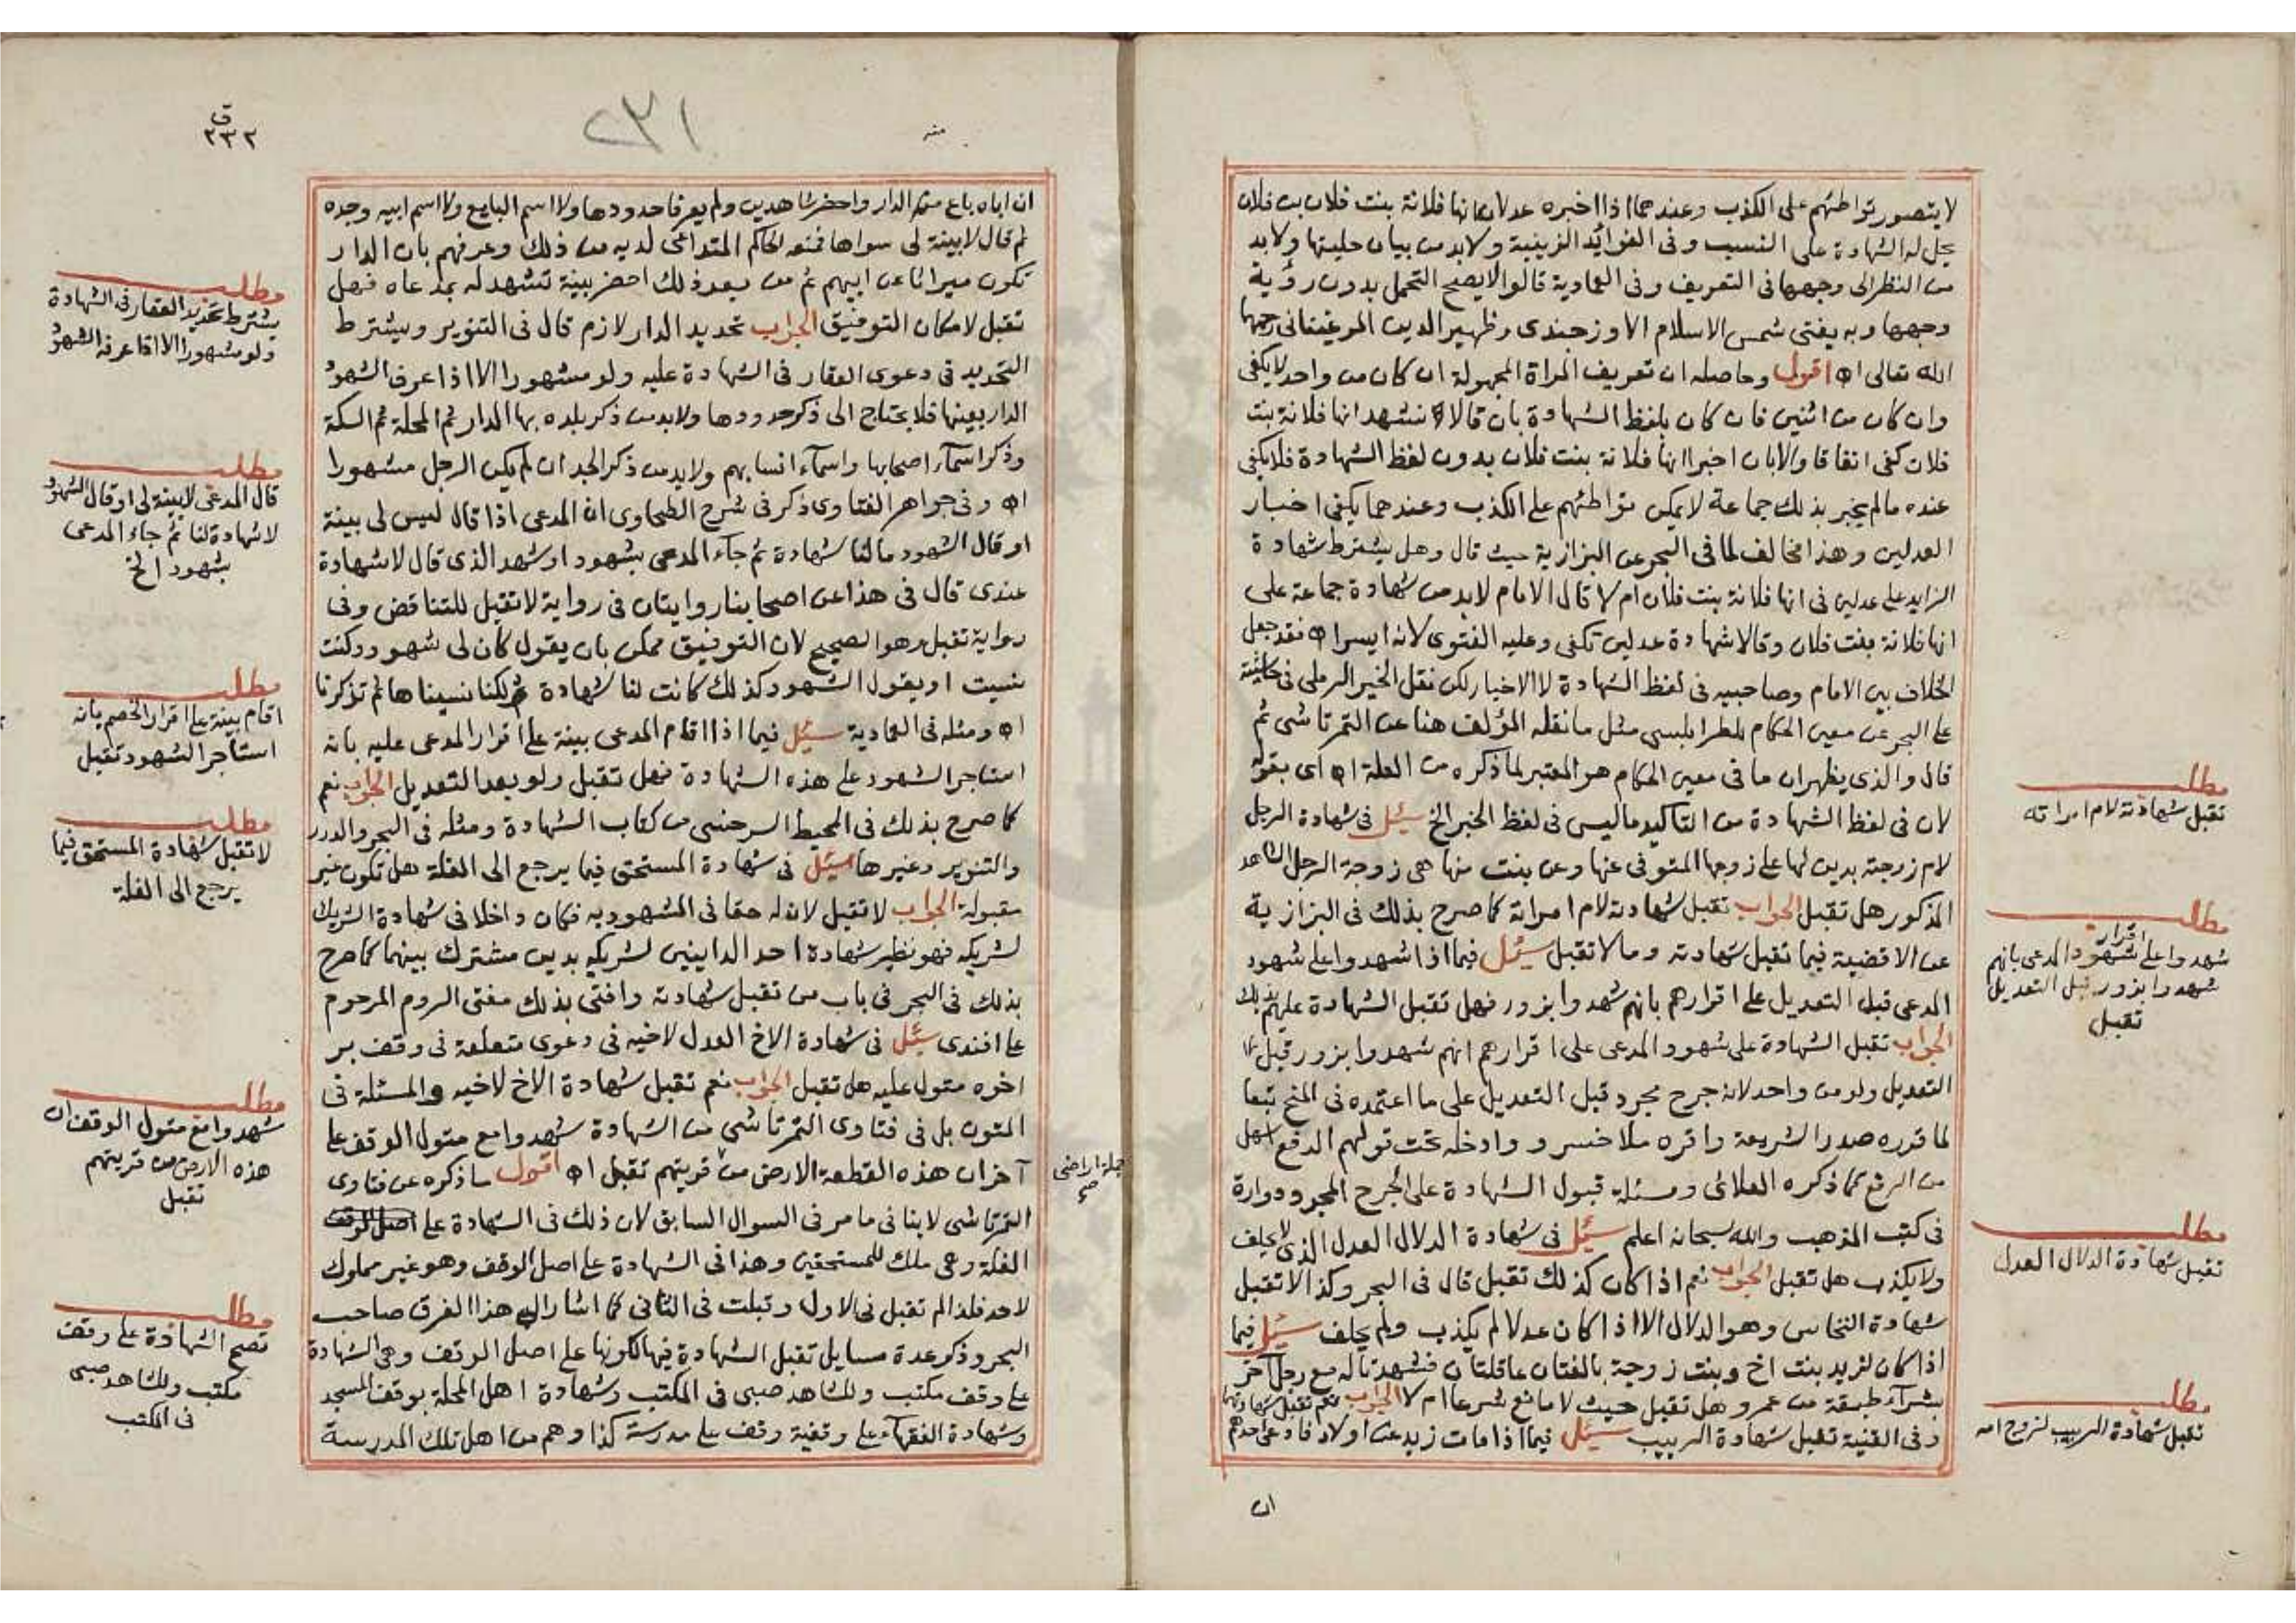 لا يتصور تواطئهم على الكذب وعندهما اذا اخبره عدلان انها فلانة بنت فلان بن فلان
يحل له الشهادة على النسب وفى الفوائد الزينية ولا بد من بيان حليتها ولا بد
من النظر الى وجهها فى التعريف وفى العمادية قالوا لا يصح التحمل بدون رؤية
وجهها وبه يفتى شمس الاسلام الاوزجندى وظهير الدين المرغينانى رحمهما
الله تعالى اه اقول وحاصله ان تعريف المراة المجهولة ان كان من واحد لا يكفى
وان كان من اثنين فان كان بلفظ الشهادة بان قالا نشهد انها فلانة بنت
فلان كفى اتفاقا والا بان اخبرا انها فلانة بنت فلان بدون لفظ الشهادة فلا يكفى
عنده ما لم يخبر بذلك جماعة لا يمكن تواطئهم على الكذب وعندهما يكفى اخبار
العدلين وهذا مخالف لما فى البحر عن البزازية حيث قال وهل يشترط شهادة
الزايد على عدلين فى انها فلانة بنت فلان ام لا قال الامام لا بد من شهادة جماعة على
انها فلانة بنت فلان وقالا شهادة عدلين تكفى وعليه الفتوى لانه ايسر اه فقد جعل
الخلاف بين الامام وصاحبيه فى لفظ الشهادة لا الاخبار لكن نقل الخير الرملى فى حاشيته
على البحر عن معين الحكام للطرابلسى مثل ما نقله المؤلف هنا عن التمرتاشى ثم
قال والذى يظهر ان ما فى معين الحكام هو المعتبر لما ذكره من العلة اه اى بقوله
لان فى لفظ الشهادة من التاكيد ما ليس فى لفظ الخبر الخ سئل فى شهادة الرجل
لام زوجته بدين لها على زوجها المتوفى عنها وعن بنت منها هى زوجة الرجل الشاهد
المذكور هل تقبل الجواب تقبل شهادته لام امراته كما صرح بذلك فى البزازية
عن الاقضية فيما تقبل شهادته وما لا تقبل سئل فيما اذا شهدوا على شهود
المدعى قبل التعديل على اقرارهم بانهم شهدوا بزور فهل تقبل الشهادة عليهم بذلك
الجواب تقبل الشهادة على شهود المدعى على اقرارهم انهم شهدوا بزور قبل
التعديل ولو من واحد لانه جرح مجرد قبل التعديل على ما اعتمده فى المنح تبعا
لما قرره صدر الشريعة واقره ملا خسرو وادخله تحت قولهم الدفع اسهل
من الرفع كما ذكره العلائى ومسئلة قبول الشهادة على الجرح المجرد دوارة
فى كتب المذهب والله سبحانه اعلم سئل فى شهادة الدلال العدل الذى لا يحلف
ولا يكذب هل تقبل الجواب نعم اذا كان كذلك تقبل قال فى البحر وكذا لا تقبل
شهادة النخاس وهو الدلال الا اذا كان عدلا لم يكذب ولم يحلف سئل فيما
اذا كان لزيد بنت اخ وبنت زوجة بالغتان عاقلتان فشهدتا له مع رجل آخر
بشرآء طبقة من عمرو هل تقبل حيث لا مانع شرعا ام لا الجواب نعم تقبل شهادتهما
وفى القنية تقبل شهادة الربيب سئل فيما اذا مات زيد عن اولاد فادعى احدهم
ان
مطلب
تقبل شهادته لام امراته
مطلب
شهدوا على اقرار شهود المدعى بانهم
شهدوا بزور قبل التعديل
تقبل
مطلب
تقبل شهادة الدلال العدل
مطلب
تقبل شهادة الربيب لزوج امه
ق
٢٣٢
٢٣١
ان اباه باع منه الدار واحضر شاهدين ولم يعرفا حدودها ولا اسم البايع ولا اسم ابيه وجده
ثم قال لا بينة لى سواها فمنعه الحاكم المتداعى لديه من ذلك وعرفهم بان الدار
تكون ميراثا عن ابيهم ثم من بعد ذلك احضر بينة تشهد له بمدعاه فهل
تقبل لامكان التوفيق الجواب تحديد الدار لازم قال فى التنوير ويشترط
التحديد فى دعوى العقار فى الشهادة عليه ولو مشهورا الا اذا عرف الشهود
الدار بعينها فلا يحتاج الى ذكر حدودها ولا بد من ذكر بلده بها الدار ثم المحلة ثم السكة
وذكر اسمآء اصحابها واسمآء انسابهم ولا بد من ذكر الجد ان لم يكن الرجل مشهورا
اه وفى جواهر الفتاوى ذكر فى شرح الطحاوى ان المدعى اذا قال ليس لى بينة
او قال الشهود ما لنا شهادة ثم جآء المدعى بشهود او شهد الذى قال لا شهادة
عندى قال فى هذا عن اصحابنا روايتان فى رواية لا تقبل للتناقض وفى
رواية تقبل وهو الصحيح لان التوفيق ممكن بان يقول كان لى شهود وكنت
نسيت او يقول الشهود كذلك كانت لنا شهادة ولكنا نسيناها ثم تذكرنا
اه ومثله فى العمادية سئل فيما اذا اقام المدعى بينة على اقرار المدعى عليه بانه
استاجر الشهود على هذه الشهادة فهل تقبل ولو بعد التعديل الجواب نعم
كما صرح بذلك فى المحيط السرخسى من كتاب الشهادة ومثله فى البحر والدرر
والتنوير وغيرها سئل فى شهادة المستحق فيما يرجع الى الغلة هل تكون غير
مقبولة الجواب لا تقبل لان له حقا فى المشهود به فكان داخلا فى شهادة الشريك
لشريكه فهو نظير شهادة احد الداينين لشريكه بدين مشترك بينهما كما صرح
بذلك فى البحر فى باب من تقبل شهادته وافتى بذلك مفتى الروم المرحوم
على افندى سئل فى شهادة الاخ العدل لاخيه فى دعوى متعلقة فى وقف بر
اخوه متول عليه هل تقبل الجواب نعم تقبل شهادة الاخ لاخيه والمسئلة فى
المتون بل فى فتاوى التمرتاشى من الشهادة شهدوا مع متول الوقف على
آخر ان هذه القطعة الارض من قريتهم تقبل اه اقول ما ذكره عن فتاوى
التمرتاشى لا ينافى ما مر فى السوال السابق لان ذلك فى الشهادة على
الغلة وهى ملك للمستحقين وهذا فى الشهادة على اصل الوقف وهو غير مملوك
لاحد فلذا لم تقبل فى الاول وقبلت فى الثانى كما اشار الى هذا الفرق صاحب
البحر وذكر عدة مسايل تقبل الشهادة فيها لكونها على اصل الوقف وهى الشهادة
على وقف مكتب وللشاهد صبى فى المكتب وشهادة اهل المحلة بوقف المسجد
وشهادة الفقهآء على وقفية وقف على مدرسة كذا وهم من اهل تلك المدرسة
جملة اراضى
صح
مطلب
يشترط تحديد العقار فى الشهادة
ولو مشهورا الا اذا عرفه الشهود
مطلب
قال المدعى لا بينة لى او قال الشهود
لا شهادة لنا ثم جاء المدعى
بشهود الخ
مطلب
اقام بينة على اقرار الخصم بانه
استأجر الشهود تقبل
مطلب
لا تقبل شهادة المستحق فيما
يرجع الى الغلة
مطلب
شهدوا مع متول الوقف ان
هذه الارض من قريتهم
تقبل
مطلب
تصح الشهادة على وقف
مكتب وللشاهد صبى
فى المكتب